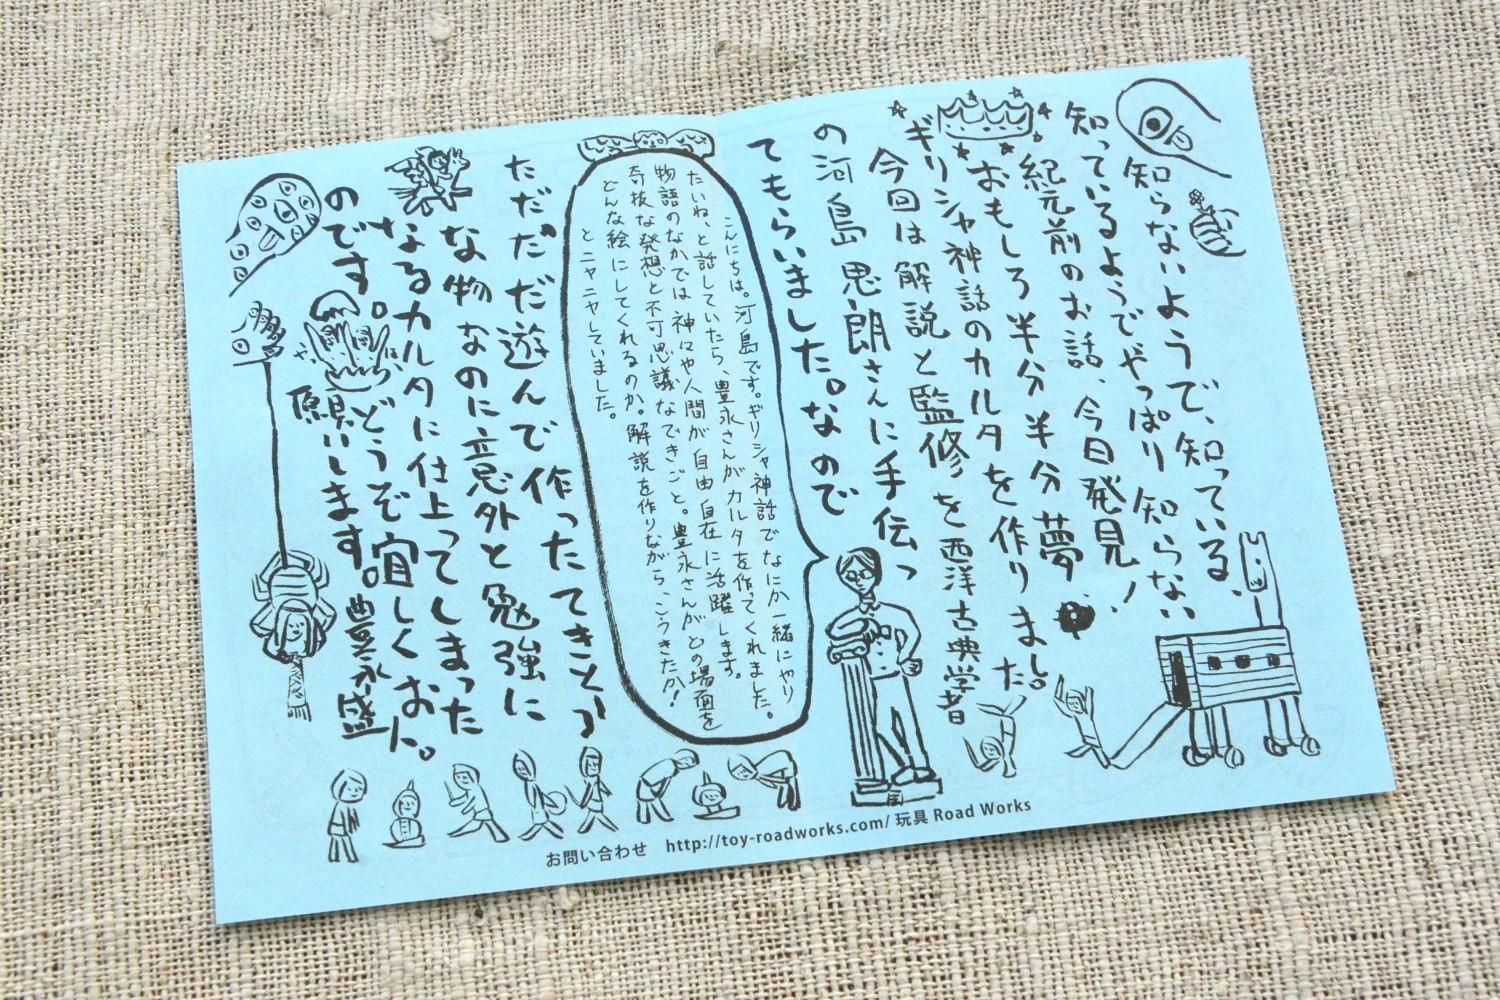 知らないようで、知っている、
知っているようでやっぱり知らない
紀元前のお話、今日発見！
おもしろ半分半分夢
ギリシャ神話のカルタを作りました。
今回は解説と監修を西洋古典学者
の河島思朗さんに手伝っ
てもらいました。なので
こんにちは。河島です。ギリシャ神話でなにか一緒にやり
たいね、と話していたら、豊永さんがカルタを作ってくれました。
物語のなかでは神々や人間が自由自在に活躍します。
奇抜な発想と不可思議なできごと。豊永さんがどの場面を
どんな絵にしてくれるのか。解説を作りながら、こうきたか！
とニヤニヤしていました。
ただただ遊んで作ったてきとう
な物なのに意外と勉強に
なるカルタに仕上ってしまった
のです。どうぞ宜しくお
願いします。豊永盛人。
お問い合わせ http://toy-roadworks.com/ 玩具 Road Works